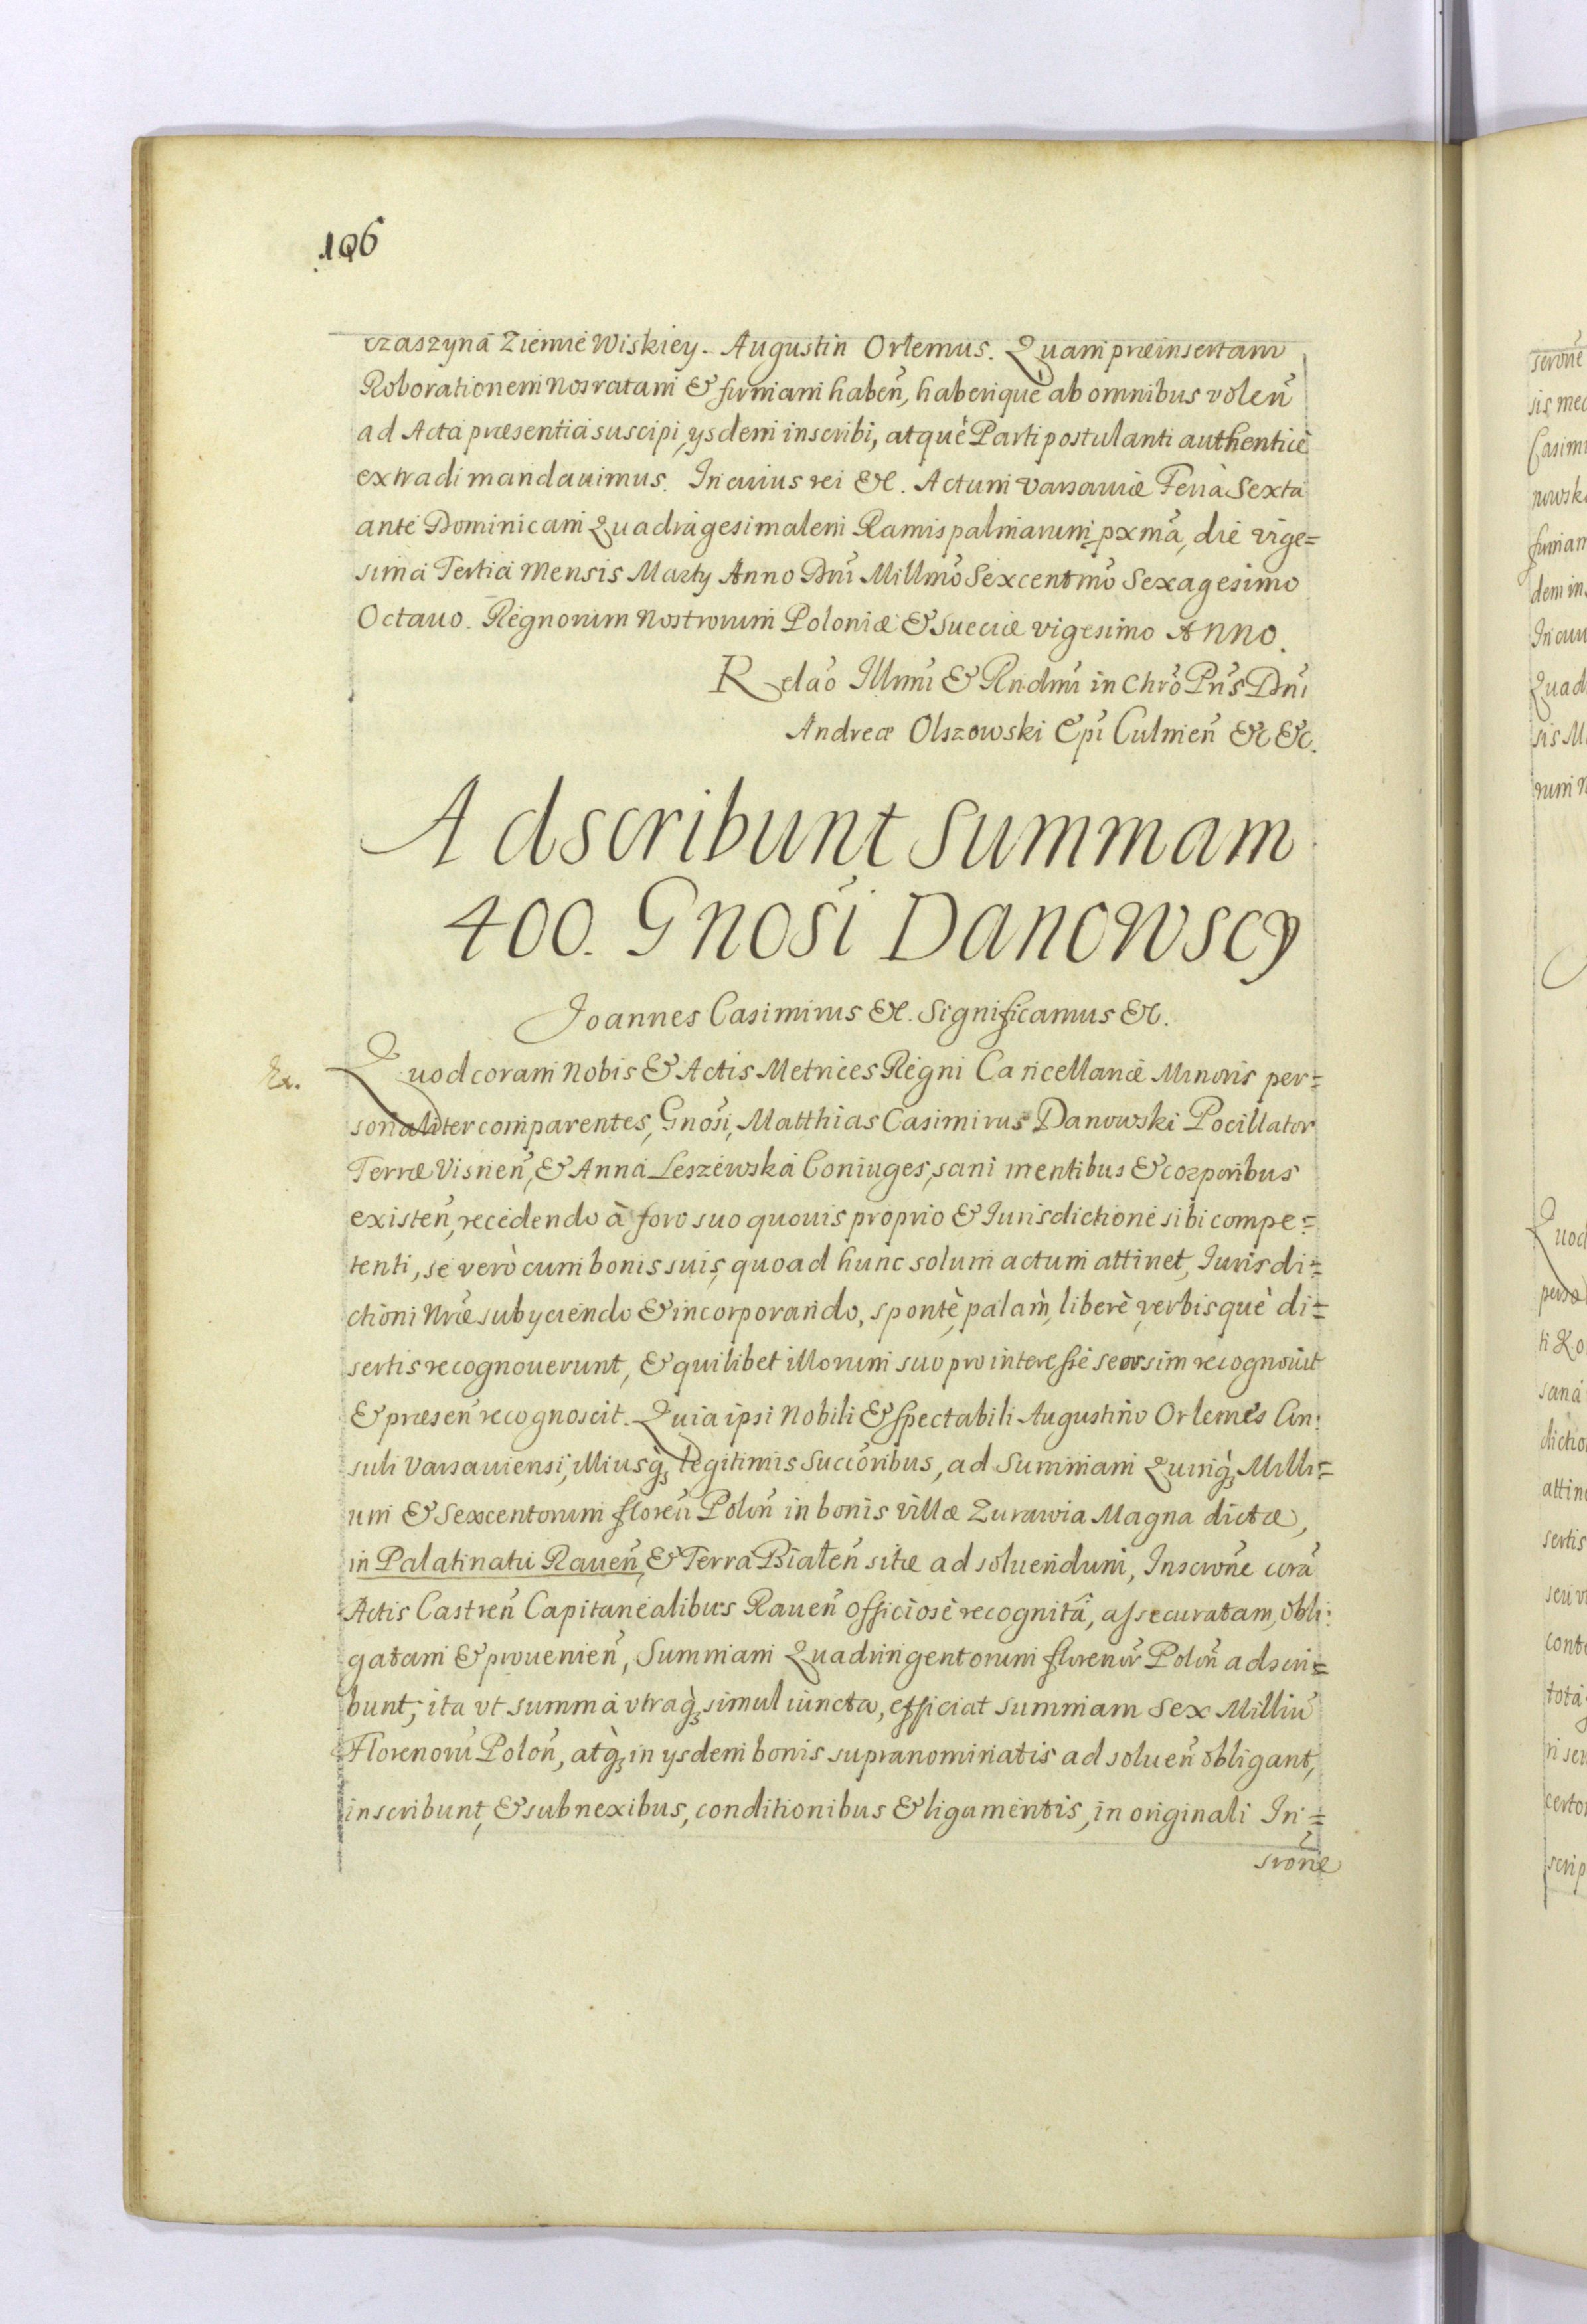 106
czaszyna Ziemie Wiskiey. Augustin Orlemus. Quam præinsertam
Roborationem nos ratam & firmam haben̄, haberique ab omnibus volen̄
ad Acta præsentia suscipi, ysdem inscribi, atquè Parti postulanti authenticè
extradi mandauimus. In cuius rei &c. Actum Varsauiæ Feria Sexta
ante Dominicam Quadragesimalem Ramis palmarum pxmā, die vige=
sima Tertia Mensis Marty Anno Dnī Millmō Sexcentmō Sexagesimo
Octauo. Regnorum Nostrorum Poloniæ & Sueciæ vigesimo Anno.
Relaō Illmī & Rndmī in Chrō Prīs Dnī
Andreæ Olszowski Epī Culmen̄ &c &c.
Adscribunt Summam
400. Gnosī Danowscy
Joannes Casimirus &c. Significamus &c.
Ex. Quod coram Nobis & Actis Metrices Regni Cancellariæ Minoris per=
sonaliter comparentes, Gnosī, Matthias Casimirus Danowski Pocillator
Terræ Visnen̄, & Anna Leszewska Coniuges, sani mentibus & corporibus
existen̄, recedendo à foro suo quouis proprio & Iurisdictione sibi compe=
tenti, se verò cum bonis suis, quoad hunc solum actum attinet, Iurisdi=
ctioni Nrāe subyciendo & incorporando, spontè, palàm, liberè, verbisquè di=
sertis recognouerunt, & quilibet illorum suo pro interesse seorsim recognouit
& præsen̄ recognoscit. Quia ipsi Nobili & Spectabili Augustino Orlemes Con:
suli Varsauiensi, illiusq̀; legitimis Succoribus, ad Summam Quinq̀; Milli=
um & Sexcentorum floren̄ Polon̄ in bonis Villæ Zurawia Magna dictæ,
in Palatinatu Rauen̄, & Terra Bialen̄ sitæ ad soluendum, Inscrōne corā
Actis Castren̄ Capitanealibus Rauen̄ officiosè recognitā, assecuratam, obli:
gatam & prouenien̄, Summam Quadringentorum florenor̄ Polon̄ adscri=
bunt; ita vt summa vtraq̀; simul iuncta, efficiat summam Sex Milliū
Florenorū Polon̄, atq̀; in ysdem bonis supranominatis ad soluen̄ obligant,
inscribunt, & sub nexibus, conditionibus & ligamentis, in originali In=
scrōne